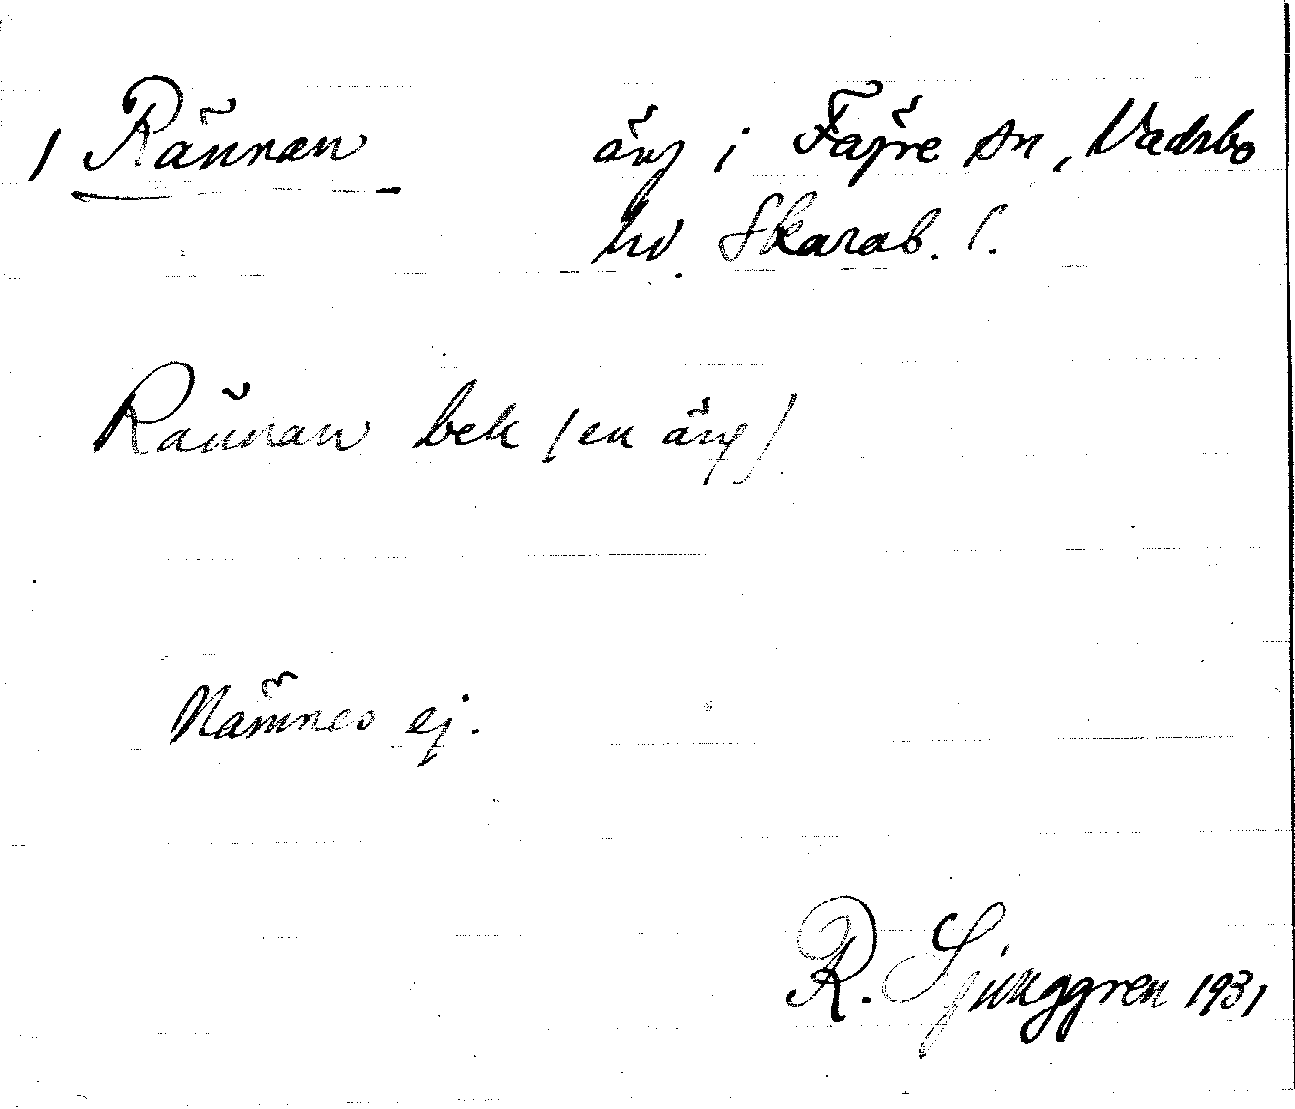 / Rännan äng i Fägre sn, Vadsbo
hd. Skarab. l.
Rännan bek (en äng)
Nämnes ej.
R. Ljunggren 1931